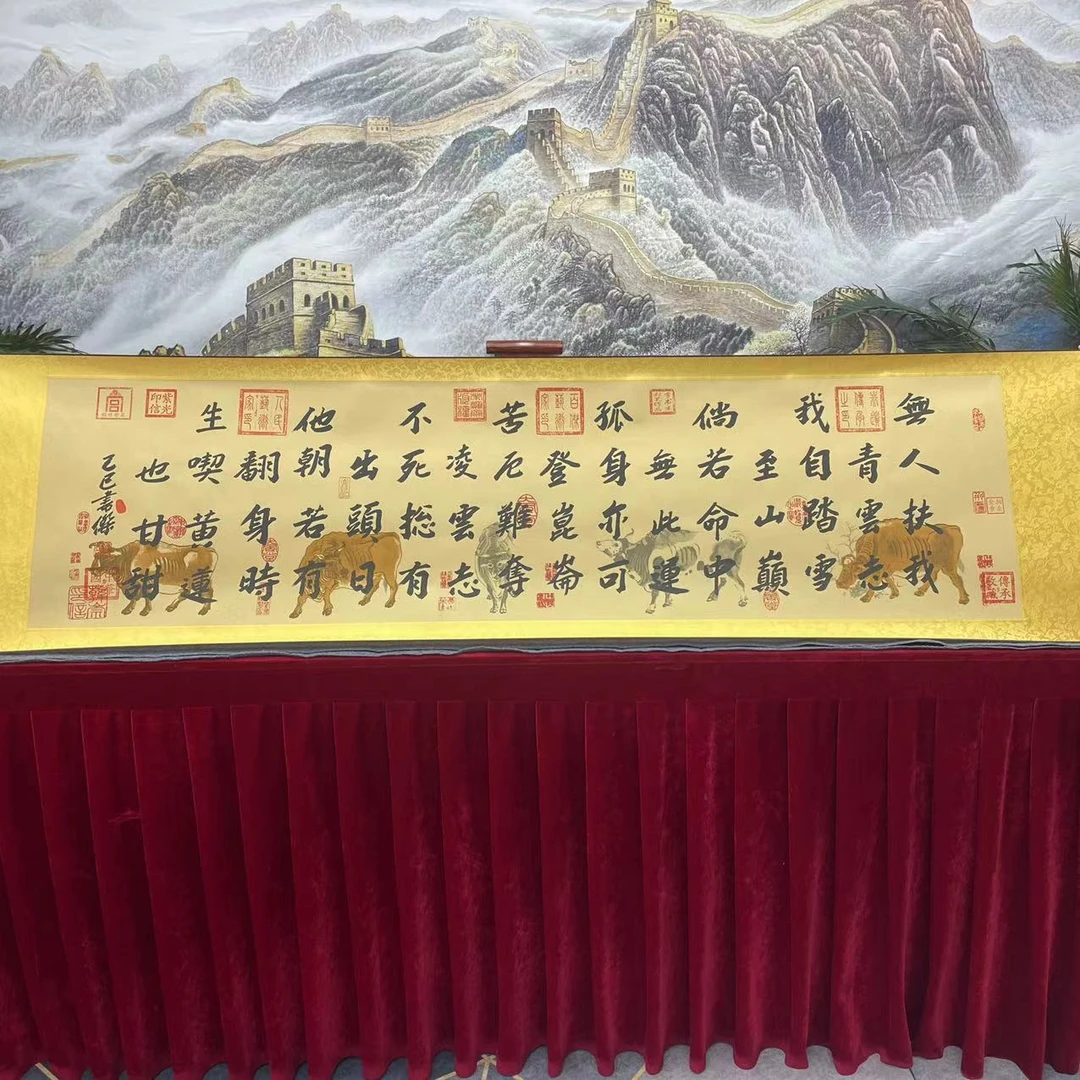 無人扶我
青雲志
我自踏雪
至山巔
倘若命中
無此運
孤身亦可
登崑崙
苦厄難奪
凌雲志
不死捴有
出頭日
他朝若有
翻身時
生喫黄蓮
也甘甜
乙巳書傑
人民藝術家印